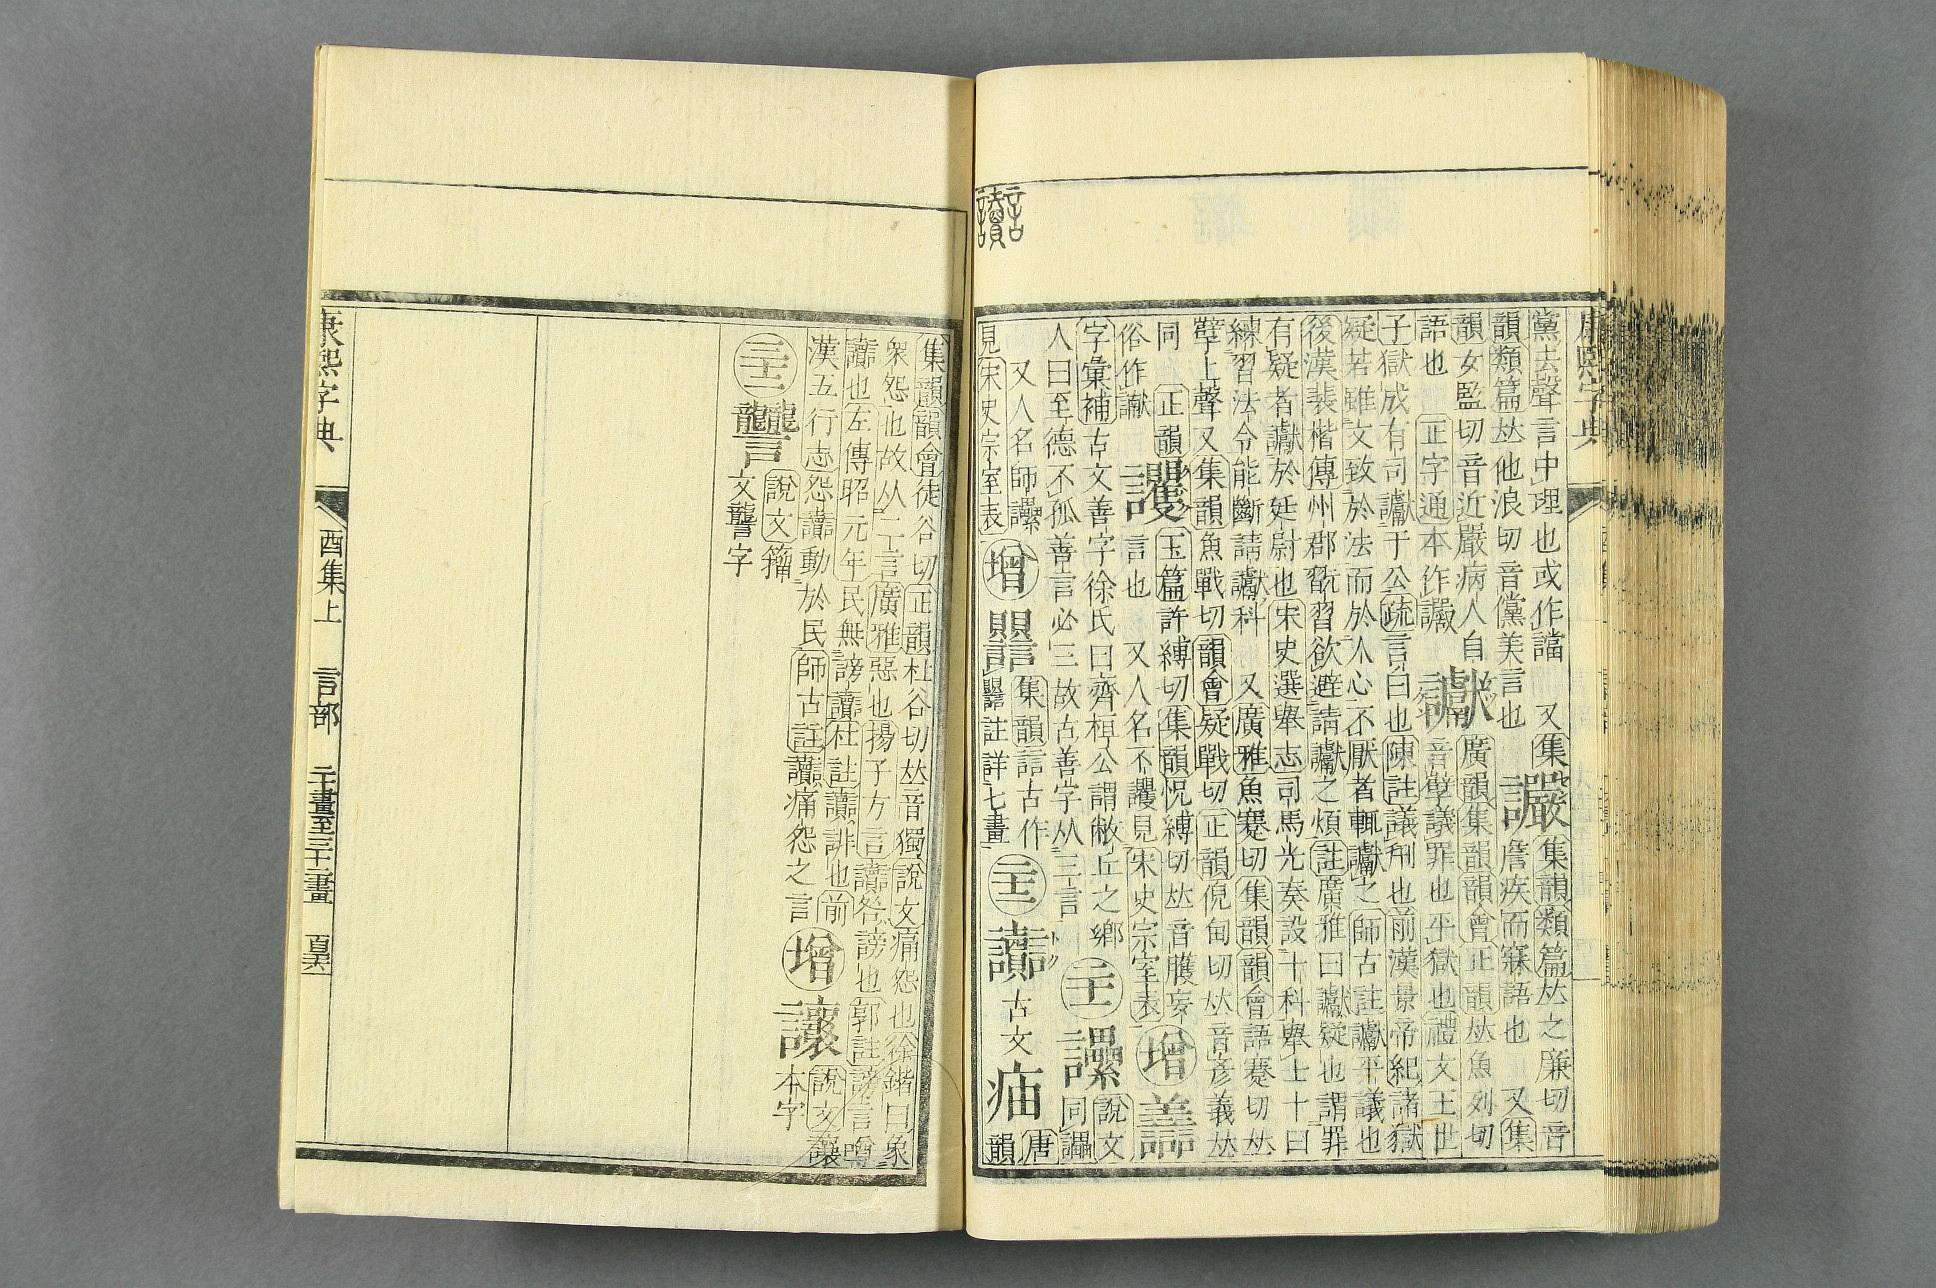 康熙字典
黨去聲言中理也或作讜 又集韻類篇𠀤之廉切音
韻類篇𠀤他浪切音儻美言也 讝集韻詹疾而寐語也 又集
韻女監切音近嚴病人自 廣韻集韻韻會正韻𠀤魚列切
語也 正字通本作讝 讞音孽議罪也平獄也禮文王世
子獄成有司讞于公疏言白也陳註議刑也前漢景帝紀諸獄
疑若雖文致於法而於人心不厭者輒讞之師古註讞平議也
後漢裴楷傳州郡翫習欲避請讞之煩註廣雅曰讞疑也謂罪
有疑者讞於廷尉也宋史選舉志司馬光奏設十科舉士十曰
練習法令能斷請讞科 又廣雅魚蹇切集韻韻會語蹇切𠀤
孽上聲又集韻魚戰切韻會疑戰切正韻倪甸切𠀤音彦義𠀤
同 正韻 玉篇許縛切集韻怳縛切𠀤音臒妄
俗作讞 讙言也 又人名不讙見宋史宗室表 增 譱
字彙補古文善字徐氏曰齊桓公謂敝丘之鄉
人曰至德不孤善言必三故古善字从三言 二十三 讄 說文同讄
又人名師讄
見宋史宗室表 增 集韻詀古作註詳七畫 二十二 讟 古文 㾄 唐韻
讟
集韻韻會徒谷切正韻杜谷切𠀤音獨說文痛怨也徐鍇曰象
衆怨也故从二言廣雅惡也揚子方言讟咎謗也郭註謗言噂
讟也左傳昭元年民無謗讟杜註讟誹也前
漢五行志怨讟動於民師古註讟痛怨之言 增 讓 說文讓本字
說文籀
文讋字
康熙字典
酉集上 言部 二十畫至三十二畫 百六